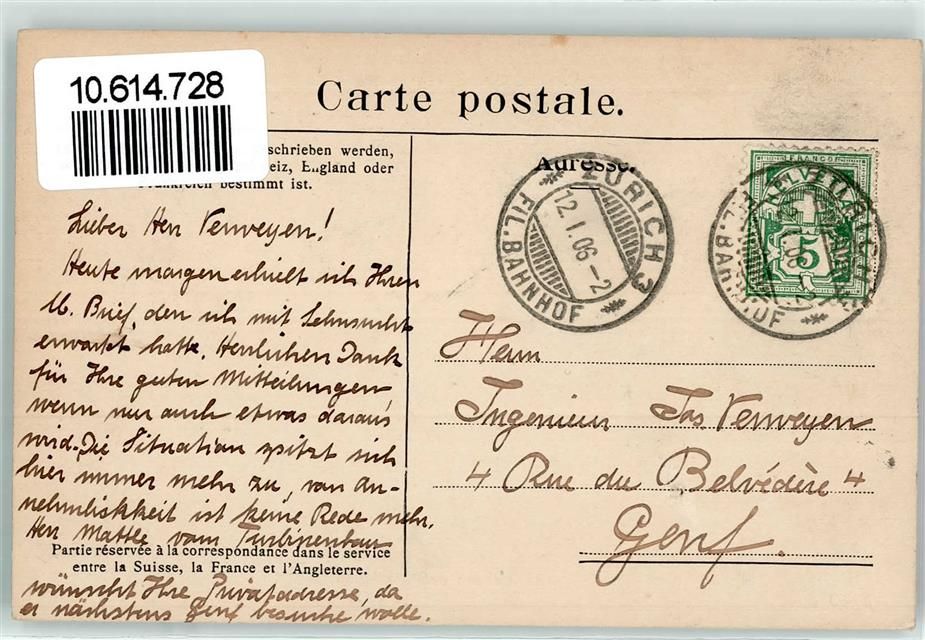 10.614.728
Carte postale.
schrieben werden,
eiz, England oder
Frankreich bestimmt ist.
Lieber Herr Verweyen!
Heute morgen erhielt ich Ihren
lb. Brief, den ich mit Sehnsucht
erwartet hatte. Herzlichen Dank
für Ihre guten Mitteilungen
wenn nur auch etwas daraus
wird. Die Situation spitzt sich
hier immer mehr zu, von An-
nehmlichkeit ist keine Rede mehr.
Herr Mattle vom Turbinenbau
Partie réservée à la correspondance dans le service
entre la Suisse, la France et l'Angleterre.
wünscht Ihre Privatadresse, da
er nächstens Genf besuche wolle.
Adresse.
ZÜRICH 3
12.I.06-2
FIL. BAHNHOF
FRANCO
HELVETIA
5
FIL. BAHNHOF
Herrn
Ingenieur Jos Verweyen
4 Rue du Belvédère 4
Genf.